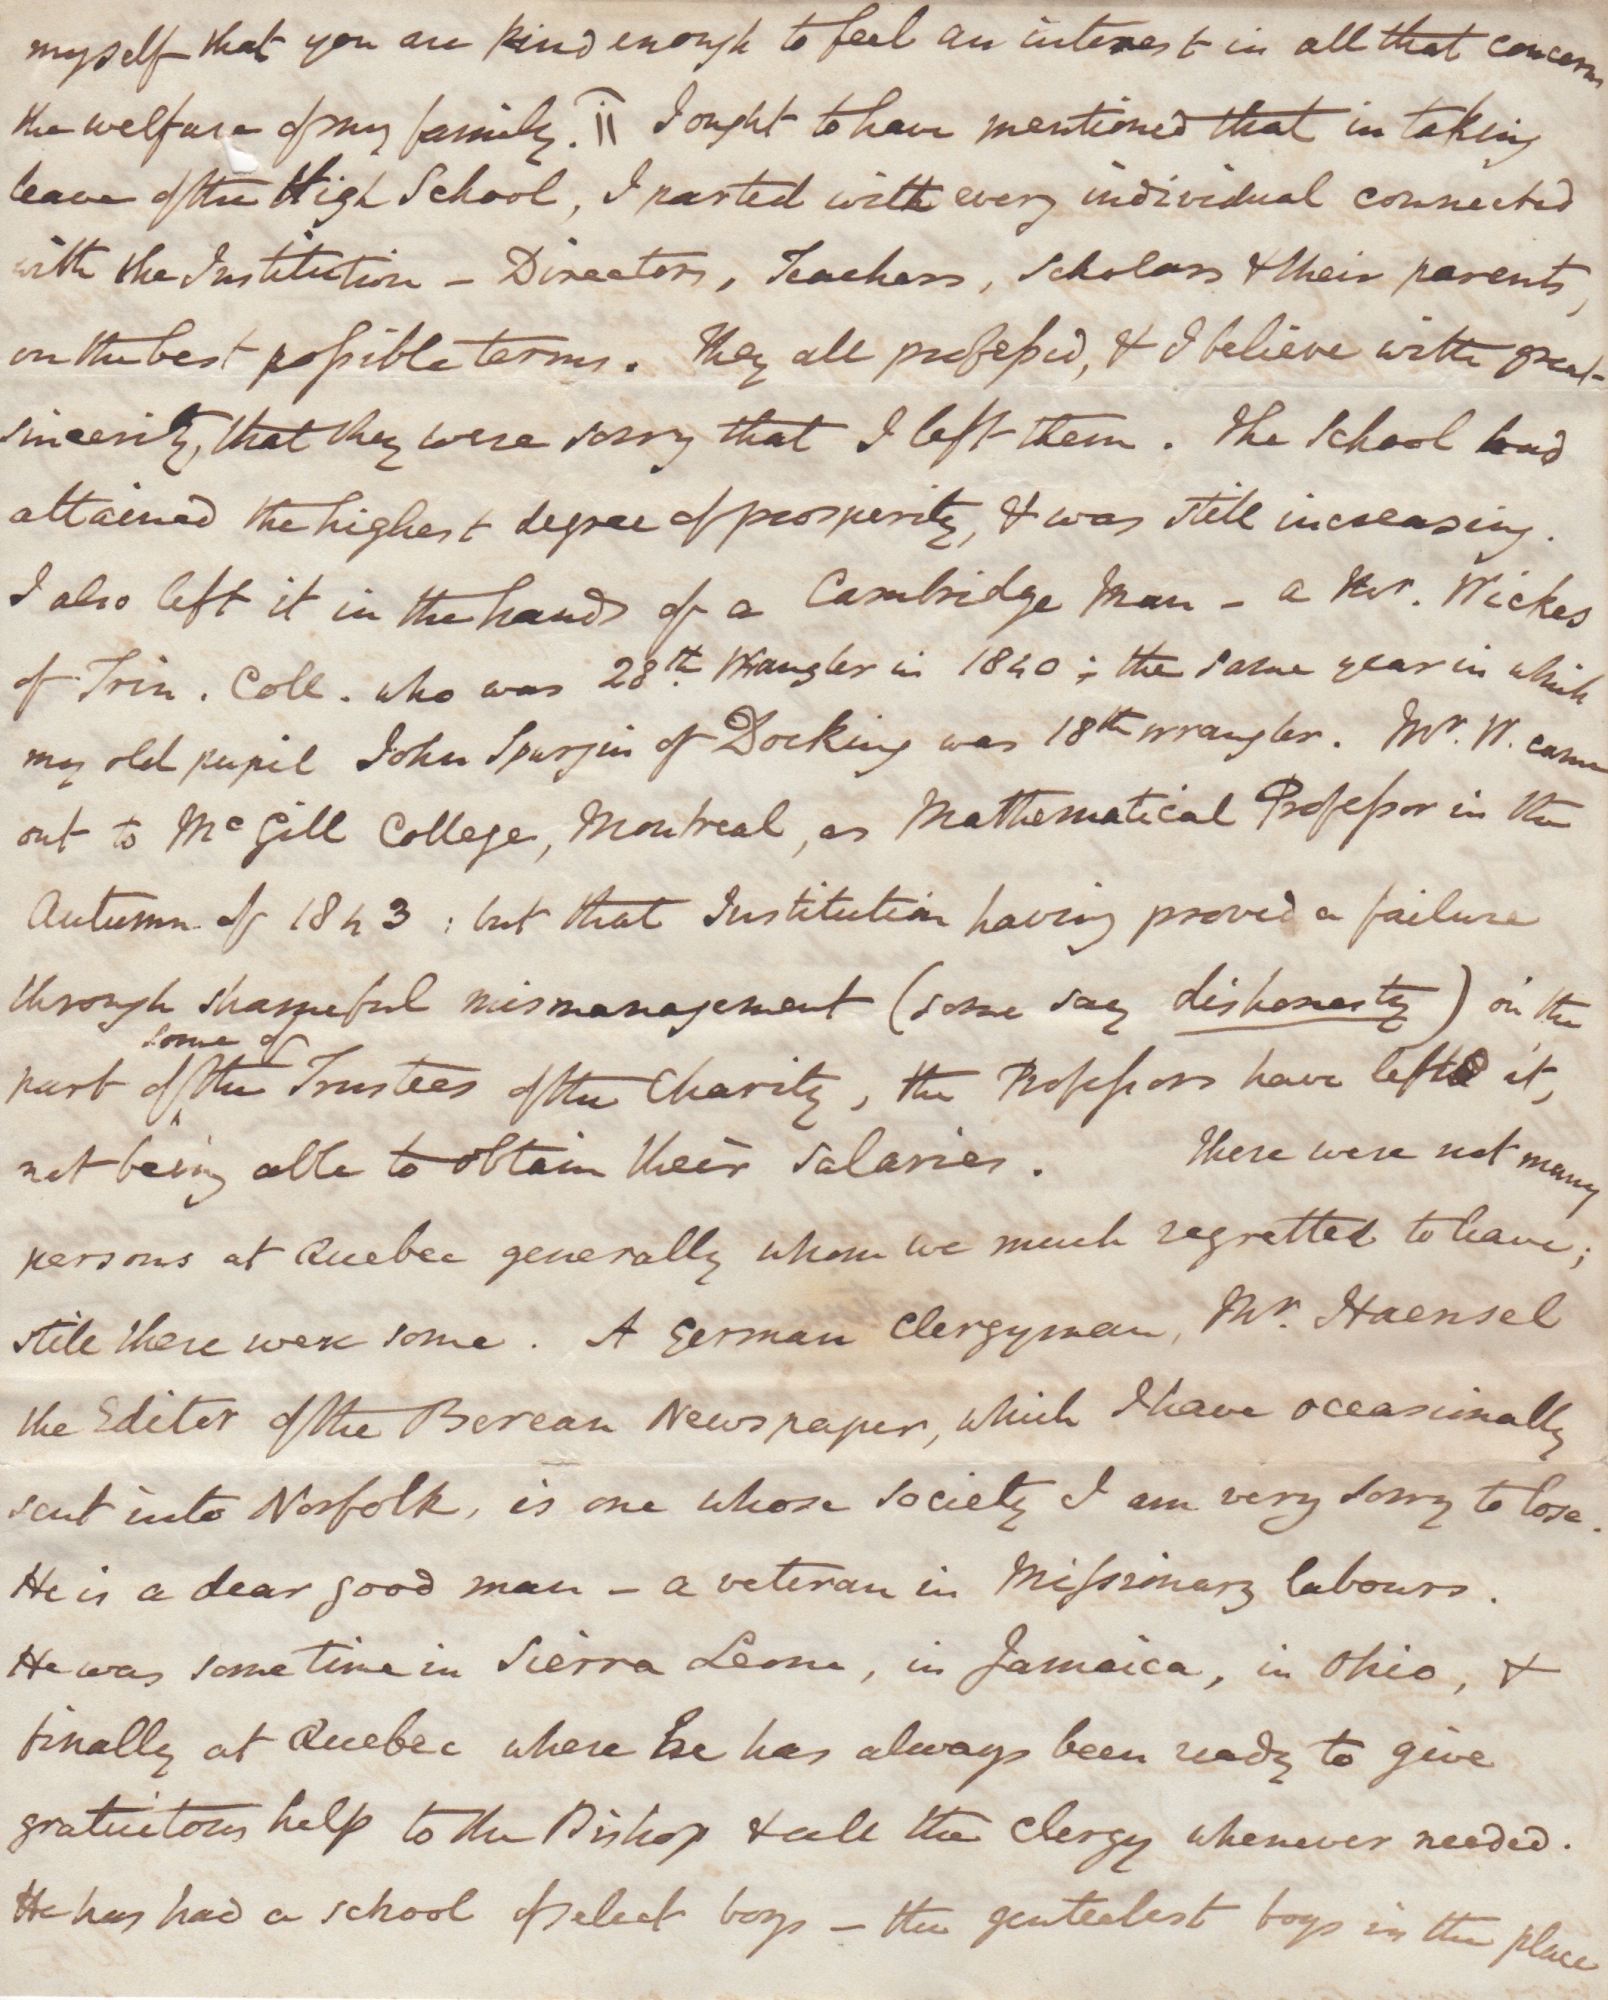 myself that you are kind enough to feel an interest in all that concerns
the welfare of my family. I ought to have mentioned that in taking
leave of the High School, I parted with every individual connected
with the Institution – Directors, Teachers, Scholars & their parents,
on the best possible terms. They all professed, & I believe with great
sincerity, that they were sorry that I left them. The School had
attained the highest degree of prosperity, & was still increasing.
I also left it in the hands of a Cambridge Man – a Mr. Wickes
of Trin. Coll. who was 28th Wrangler in 1840; the same year in which
my old pupil John Spurgin of Docking was 18th wrangler. Mr. W. came
out to McGill College, Montreal, as Mathematical Professor in the
Autumn of 1843; but that Institution having proved a failure
through shameful mismanagement (some say dishonesty) on the
some of
part of the Trustees of the Charity, the Professors have left it,
not being able to obtain their salaries. There were not many
persons at Quebec generally whom we much regretted to leave;
still there were some. A German Clergyman, Mr. Haensel
the Editor of the Berean Newspaper, which I have occasionally
sent into Norfolk, is one whose society I am very sorry to lose.
He is a dear good man – a veteran in Missionary labours.
He was some time in Sierra Leone, in Jamaica, in Ohio, &
finally at Quebec where he has always been ready to give
gratuitous help to the Bishop & all the Clergy whenever needed.
He has had a school of select boys – the genteelest boys in the place